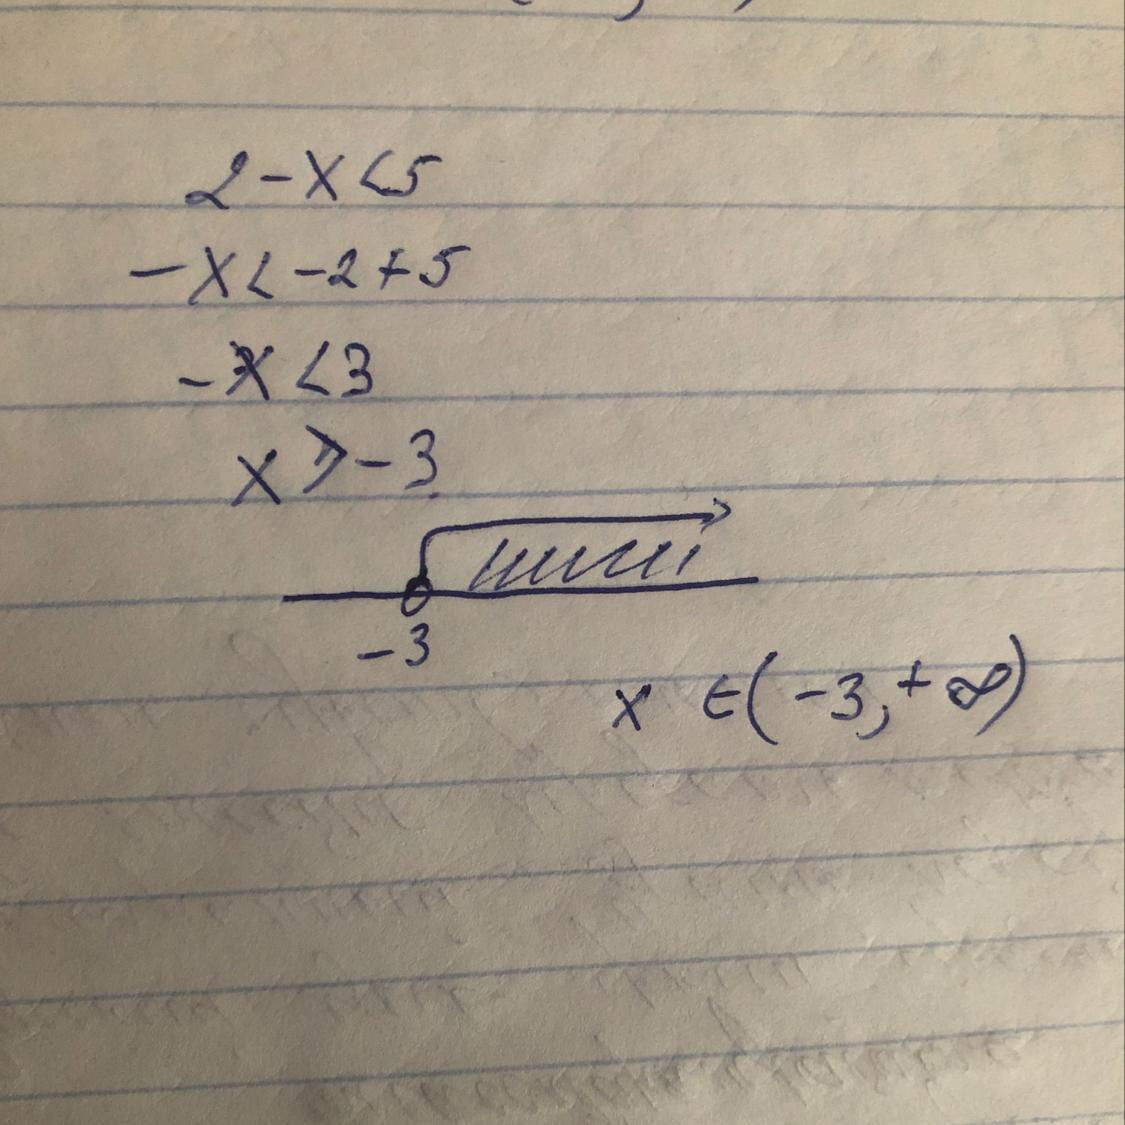 2-x<5
-x<-2+5
-x<3
x>-3
-3
x ∈(-3,+∞)